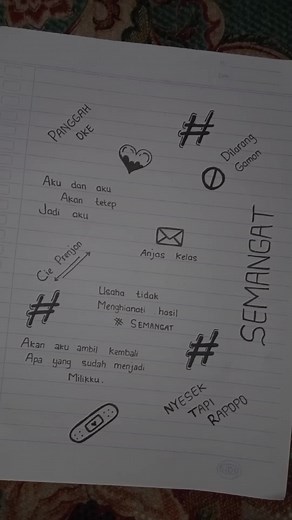 PANGGAH
OKE
#
Dilarang
Gamon
Aku dan aku
Akan tetep
Jadi aku
Anjas Kelas
SEMANGAT
Cie Prenjon
#
Usaha tidak
Menghianati hasil
※ SEMANGAT
#
Akan aku ambil kembali
Apa yang sudah menjadi
Milikku.
NYESEK
TAPI
RAPOPO